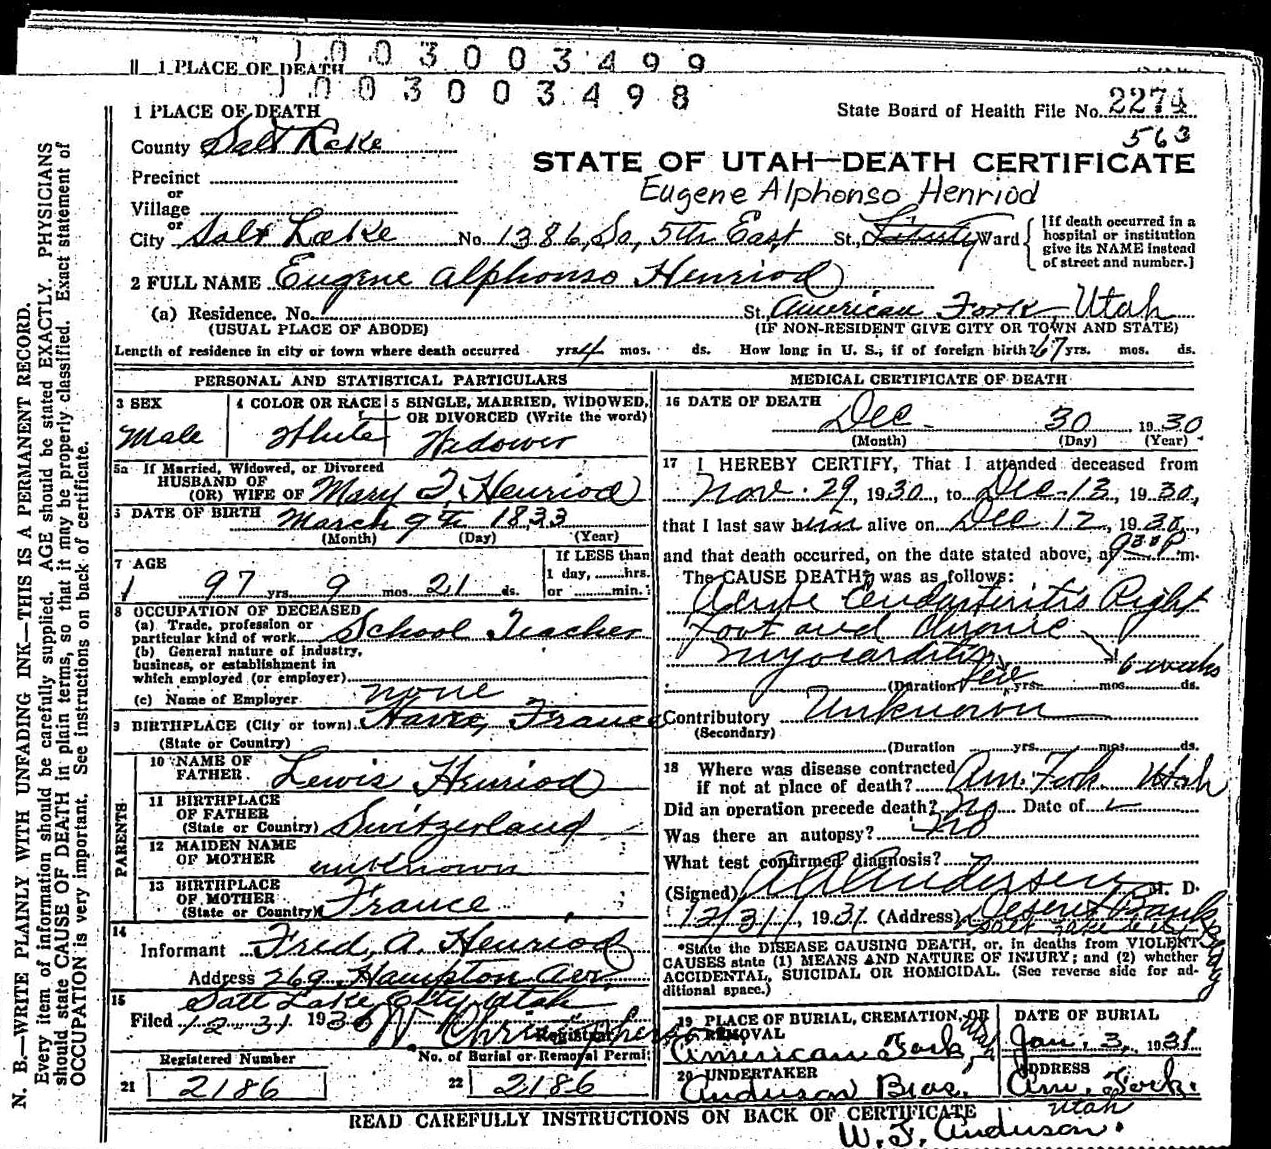 1003003499
1 PLACE OF DEATH
1003003498
1 PLACE OF DEATH
State Board of Health File No. 2274
563
County Salt Lake
STATE OF UTAH—DEATH CERTIFICATE
Precinct
Eugene Alphonso Henriod
or
Village
or
City Salt Lake No. 1386 So, 5th East St., Liberty Ward
[If death occurred in a
hospital or institution
give its NAME instead
of street and number.]
2 FULL NAME Eugene Alphonso Henriod
(a) Residence. No. St. American Fork, Utah
(USUAL PLACE OF ABODE) (IF NON-RESIDENT GIVE CITY OR TOWN AND STATE)
Length of residence in city or town where death occurred yrs. 4 mos. ds. How long in U. S., if of foreign birth? 67 yrs. mos. ds.
PERSONAL AND STATISTICAL PARTICULARS
3 SEX
Male
4 COLOR OR RACE
White
5 SINGLE, MARRIED, WIDOWED,
OR DIVORCED (Write the word)
Widower
5a If Married, Widowed, or Divorced
HUSBAND OF
(OR) WIFE OF Mary I. Henriod
DATE OF BIRTH March 9th 1833
(Month) (Day) (Year)
7 AGE
97 yrs. 9 mos. 21 ds.
If LESS than
1 day, hrs.
or min.
8 OCCUPATION OF DECEASED
(a) Trade, profession or
particular kind of work School Teacher
(b) General nature of industry,
business, or establishment in
which employed (or employer)
(c) Name of Employer none
9 BIRTHPLACE (City or town) Havre, France
(State or Country)
PARENTS
10 NAME OF
FATHER Lewis Henriod
11 BIRTHPLACE
OF FATHER
(State or Country) Switzerland
12 MAIDEN NAME
OF MOTHER unknown
13 BIRTHPLACE
OF MOTHER
(State or Country) France
14
Informant Fred. A. Henriod
Address 269 Hampton Ave.
Salt Lake City Utah
15
Filed 12 31 1930 W. Christopherson
Registrar
Registered Number
21 2186
No. of Burial or Removal Permit
22 2186
MEDICAL CERTIFICATE OF DEATH
16 DATE OF DEATH
Dec. 30 1930
(Month) (Day) (Year)
17 I HEREBY CERTIFY, That I attended deceased from
Nov. 29, 1930, to Dec-13, 1930,
that I last saw him alive on Dec 12, 1930,
and that death occurred, on the date stated above, at 930P m.
The CAUSE DEATH* was as follows:
Acute Endarteritis Right
foot and chronic
myocarditis 6 weeks
(Duration yrs. mos. ds.
Contributory Unknown
(Secondary)
(Duration yrs. mos. ds.
18 Where was disease contracted
if not at place of death? Am. Fork. Utah
Did an operation precede death? no Date of
Was there an autopsy? no
What test confirmed diagnosis?
(Signed) Andersen M. D.
12/31, 1931 (Address) Deseret Bank
Bldg
Salt Lake City
*State the DISEASE CAUSING DEATH, or, in deaths from VIOLENT
CAUSES state (1) MEANS AND NATURE OF INJURY; and (2) whether
ACCIDENTAL, SUICIDAL OR HOMICIDAL. (See reverse side for ad-
ditional space.)
19 PLACE OF BURIAL, CREMATION, OR
REMOVAL
American Fork, Utah
DATE OF BURIAL
Jan. 3, 1931
20 UNDERTAKER
Anderson Bros.
ADDRESS
Am. Fork.
Utah
READ CAREFULLY INSTRUCTIONS ON BACK OF CERTIFICATE
W. J. Anderson.
N. B.—WRITE PLAINLY WITH UNFADING INK—THIS IS A PERMANENT RECORD.
Every item of information should be carefully supplied. AGE should be stated EXACTLY. PHYSICIANS
should state CAUSE OF DEATH in plain terms, so that it may be properly classified. Exact statement of
OCCUPATION is very important. See instructions on back of certificate.